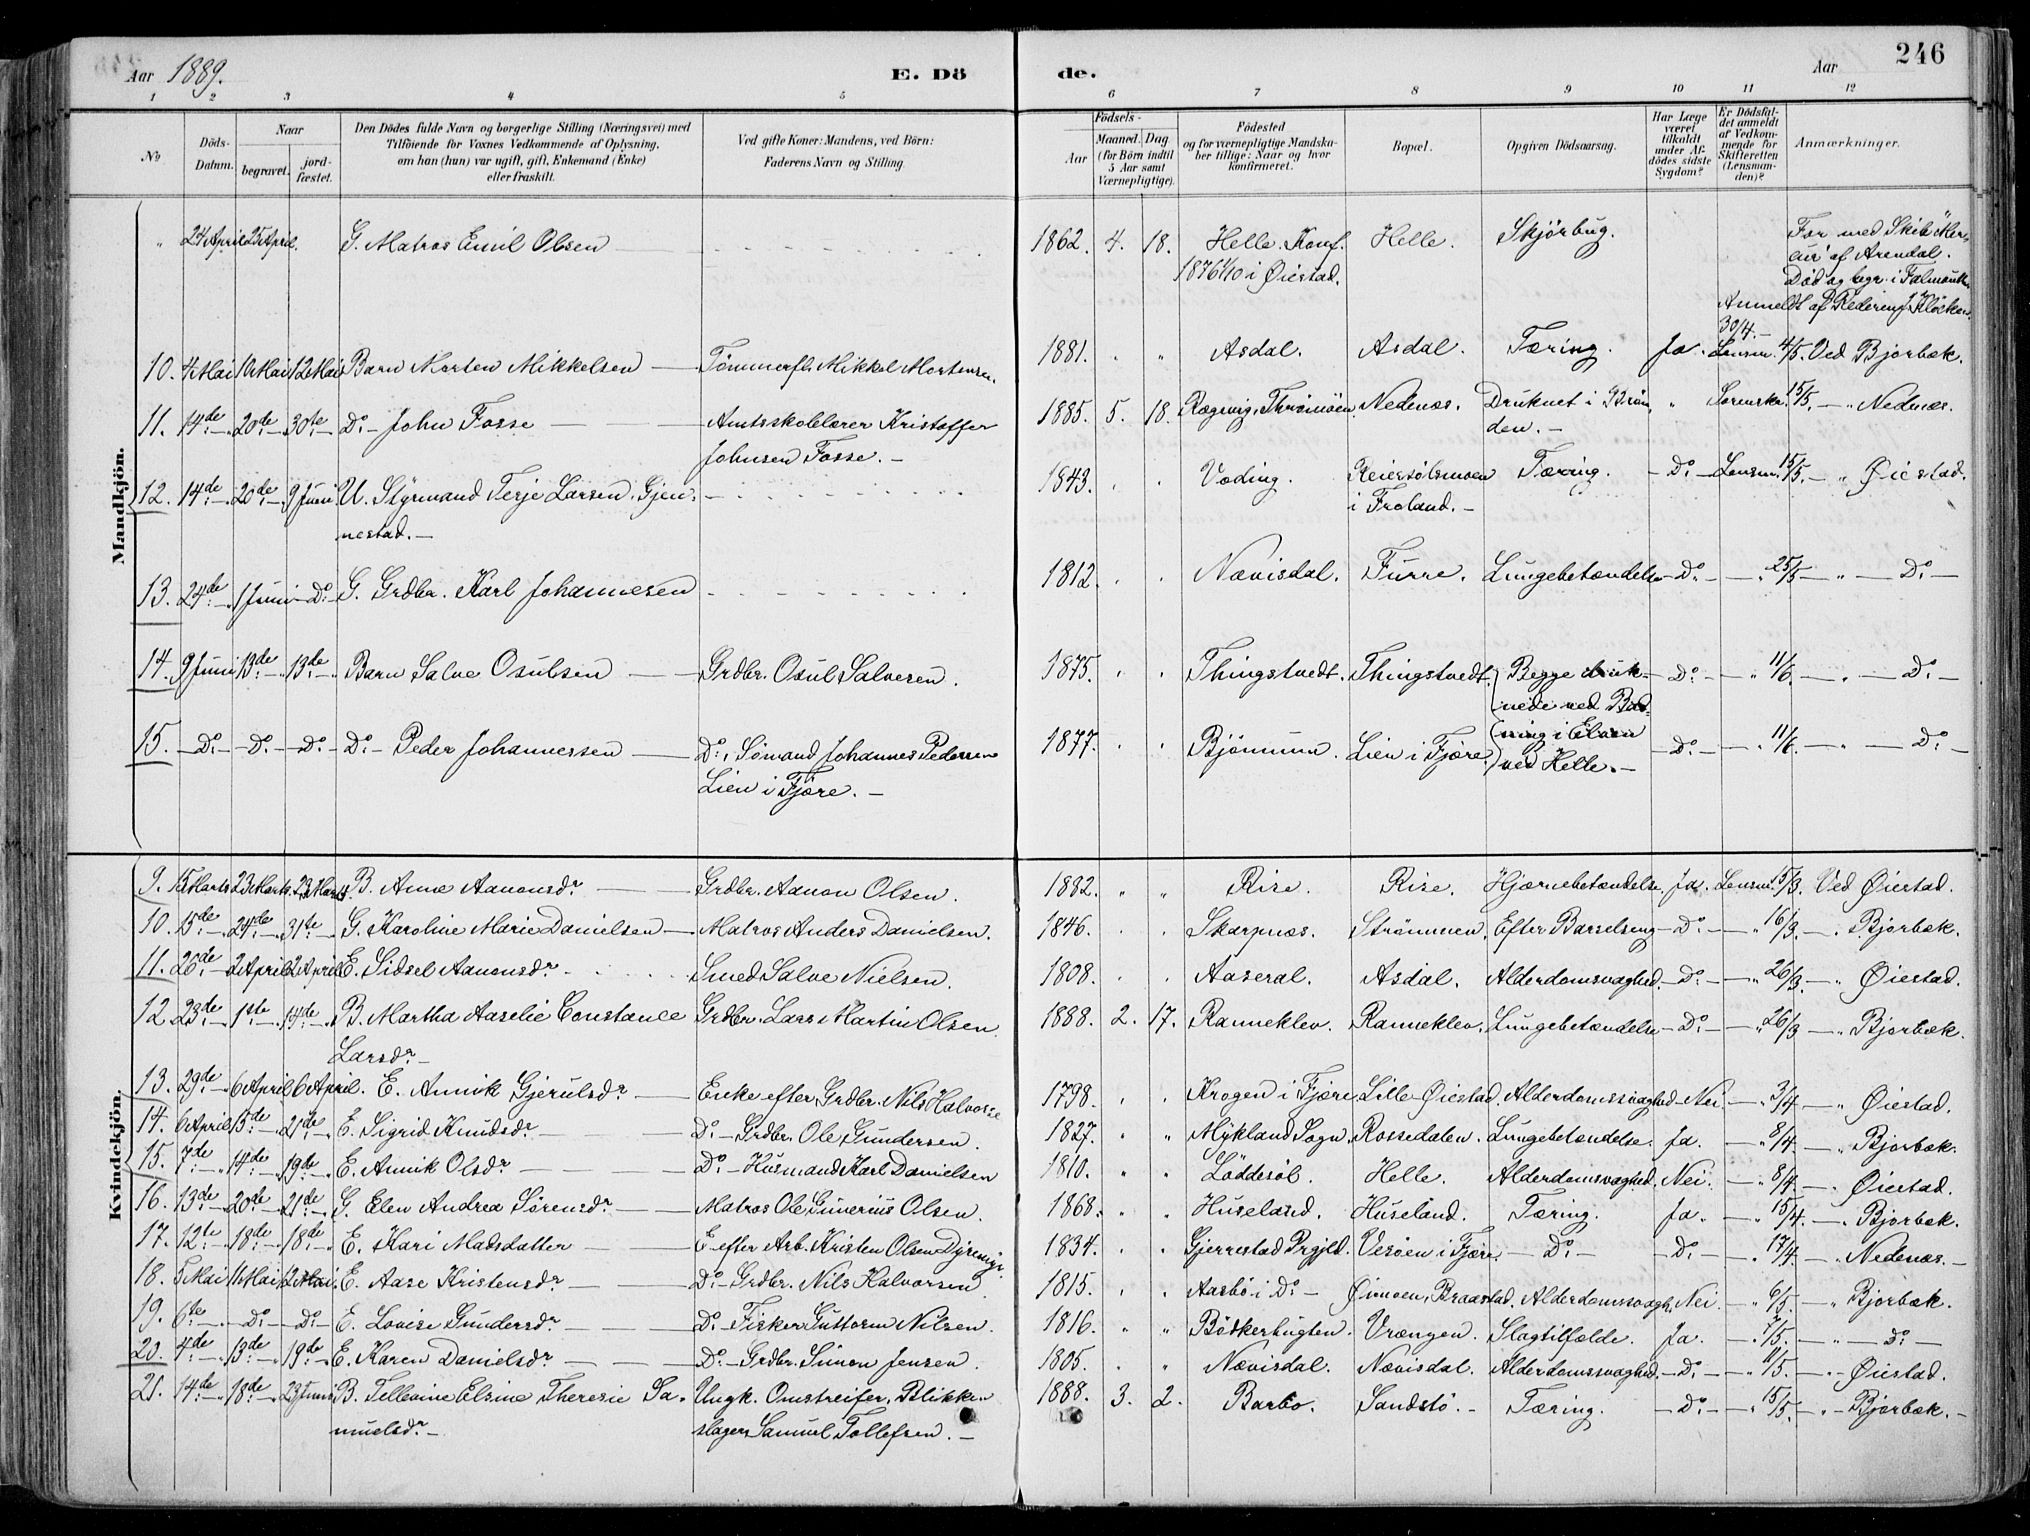 246
Aar 1889. E. Dö de. Aar
1 2 3 4 5 6 7 8 9 10 11 12
No
Döds-Datum.
Naar
begravet.
jord-fæstet.
Den Dödes fulde Navn og borgerlige Stilling (Næringsvei) med
Tilföiende for Voxnes Vedkommende af Oplysning,
om han (hun) var ugift, gift, Enkemand (Enke)
eller fraskilt.
Ved gifte Koner: Mandens, ved Börn:
Faderens Navn og Stilling.
Födsels-
Aar
Maaned. Dag.
(for Börn indtil
5 Aar samt
Værnepligtige).
Födested
og for værnepligtige Mandska-
ber tillige: Naar og hvor
konfirmeret.
Bopæl.
Opgiven Dödsaarsag.
Har Læge
været
tilkaldt
under Af-
dödes sidste
Sygdom?
Er Dödsfal-
det anmeldt
af Vedkom-
mende for
Skifteretten
(Lensman-
den)?
Anmærkninger.
Mandkjön.
" 24 April 25 April. G. Matros Emil Olsen 1862. 4. 18. Helle. Konf. Helle. Skjørbug. For med Skib "Mer-
1876 1/10 i Øiestad. cur" af Arendal.
Död og begr. i Falmouth.
Anmeldt af Rederiet Kløcker
30/4.
10. 4 Mai 10 Mai 12 Mai Barn Morten Mikkelsen — Tømmerfl. Mikkel Mortensen. 1881. " " Asdal. Asdal. Tæring. Ja. Lensm. 4/5. Ved Bjorbæk.
11. 14de 20de 30te Do - John Fosse — Amtsskolelærer Kristoffer 1885. 5. 18. Rægevig, Thromøen. Nedenæs. Druknet i Brøn- " Sorenskr. 15/5. — " Nednæs.
Johnsen Fosse. — den. —
12. 14de 20de 9 Juni U. Styrmand Terje Larsen. Gjen- 1843. " " Voding. Reiersølsmoen Tæring. Do Lensm. 15/5. — " Øiestad.
nestad. — i Froland. —
13. 24de 1 Juni Do G. Grdbr. Karl Johannesen 1812. " " Nævisdal. Furre. Lungebetændelse Do — " 25/5 — " — Do —
14. 9 Juni 13de 13de Barn Salve Osulsen — Grdbr. Osul Salvesen. 1875. " " Thingstvedt. Thingstvedt. Begge druk- Do — " 11/6. — " — Do —
nede ved Bad-
15. Do Do Do Do - Peder Johannessen — Do, Sømand Johannes Pedersen 1877. " " Bjønnum. Lien i Fjære. ning i Elven Do — " 11/6. — " — Do —
Lien i Fjære. — ved Helle. —
Kvindekjön.
9. 15 Marts 23 Marts 23 Marts B. Anne Aanonsdr — Grdbr. Aanon Olsen. 1882. " " Rise. Rise. Hjærnebetændelse. Ja. Lensm. 15/3. Ved Øiestad.
10. 15de 24de 31te G. Karoline Marie Danielsen — Matros Anders Danielsen. 1846. " " Skarpnæs. Strømmen. Efter Barselseng Do — " 16/3. — " Bjorbæk.
11. 26de 2 April 2 April E. Sidsel Aanonsdr Smed Salve Nielsen. 1808. " " Aaseral. Asdal. Alderdomsvaghed. Do — " 26/3. — " Øiestad.
12 23de 1ste 14de B. Martha Aaselie Constance Grdbr. Lars Martin Olsen. 1888. 2. 17. Ranneklev. Ranneklev. Lungebetændelse Do — " 26/3 — " Bjorbæk.
Larsdr —
13. 29de 6 April 6 April. E. Annik Gjerulsdr — Enke efter Grdbr. Nils Halvorse 1798. " " Krogen i Fjære Lille Øiestad. Alderdomssvaghed Nei — " 3/4 — " Øiestad.
14. 6 April 15de 21de E. Sigrid Knudsdr — Do Grdbr. Ole Gundersen. 1827. " " Mykland Sogn. Rossedalen. Lungebetændelse. Ja. — " 8/4 — " Bjorbæk.
15. 7de 14de 19de E. Annik Olsdr — Do Husmand Karl Danielsen 1810. " " Løddesøl. Helle. Alderdomsvaghed. Nei. — " 8/4 — " Øiestad.
16. 13de 20de 21de G. Elen Andrea Sørensdr — Matros Ole Gunerius Olsen. 1868. " " Huseland. Huseland. Tæring. Ja. — " 15/4. — " Bjorbæk.
17. 12te 18de 18de E. Kari Madsdatter — E. efter Arb. Kristen Olsen 1834. " " Gjerrestad Prgjld. Vesøen i Fjære — Do — Do — " 17/4. — " Nedenæs. —
18. 5 Mai 11 Mai 12 Mai. E. Aase Kristensdr — Do Grdbr. Nils Halvorsen. 1815. " " Aasbø i Do — Øimoen, Braastad. Alderdomssvagh. Nei. — " 6/5. — " Bjorbæk.
19. 6te Do Do E. Lovise Gundersdr — Do Fisker Guttorm Nilsen. 1816. " " Bødkerbugten. Vrængen. Slagtilfælde. Ja. — " 7/5. — " — Do —
20. 4de 13de 19de E. Karen Danielsdr — Do Grdbr. Simon Jensen. 1805. " " Nævisdal. Nævisdal. Alderdomssvaghed. Do — " 11/5. — " Øiestad.
21. 14de 18de 23 Juni B. Tellevine Elsine Theresie Sa- Ungk. Omstreifer, Blikken- 1888. 3. 2. Barbo. Sandstø. — Tæring. Do — " 15/5. — " Bjorbæk. —
muelsdr — slager Samuel Tollefsen. —